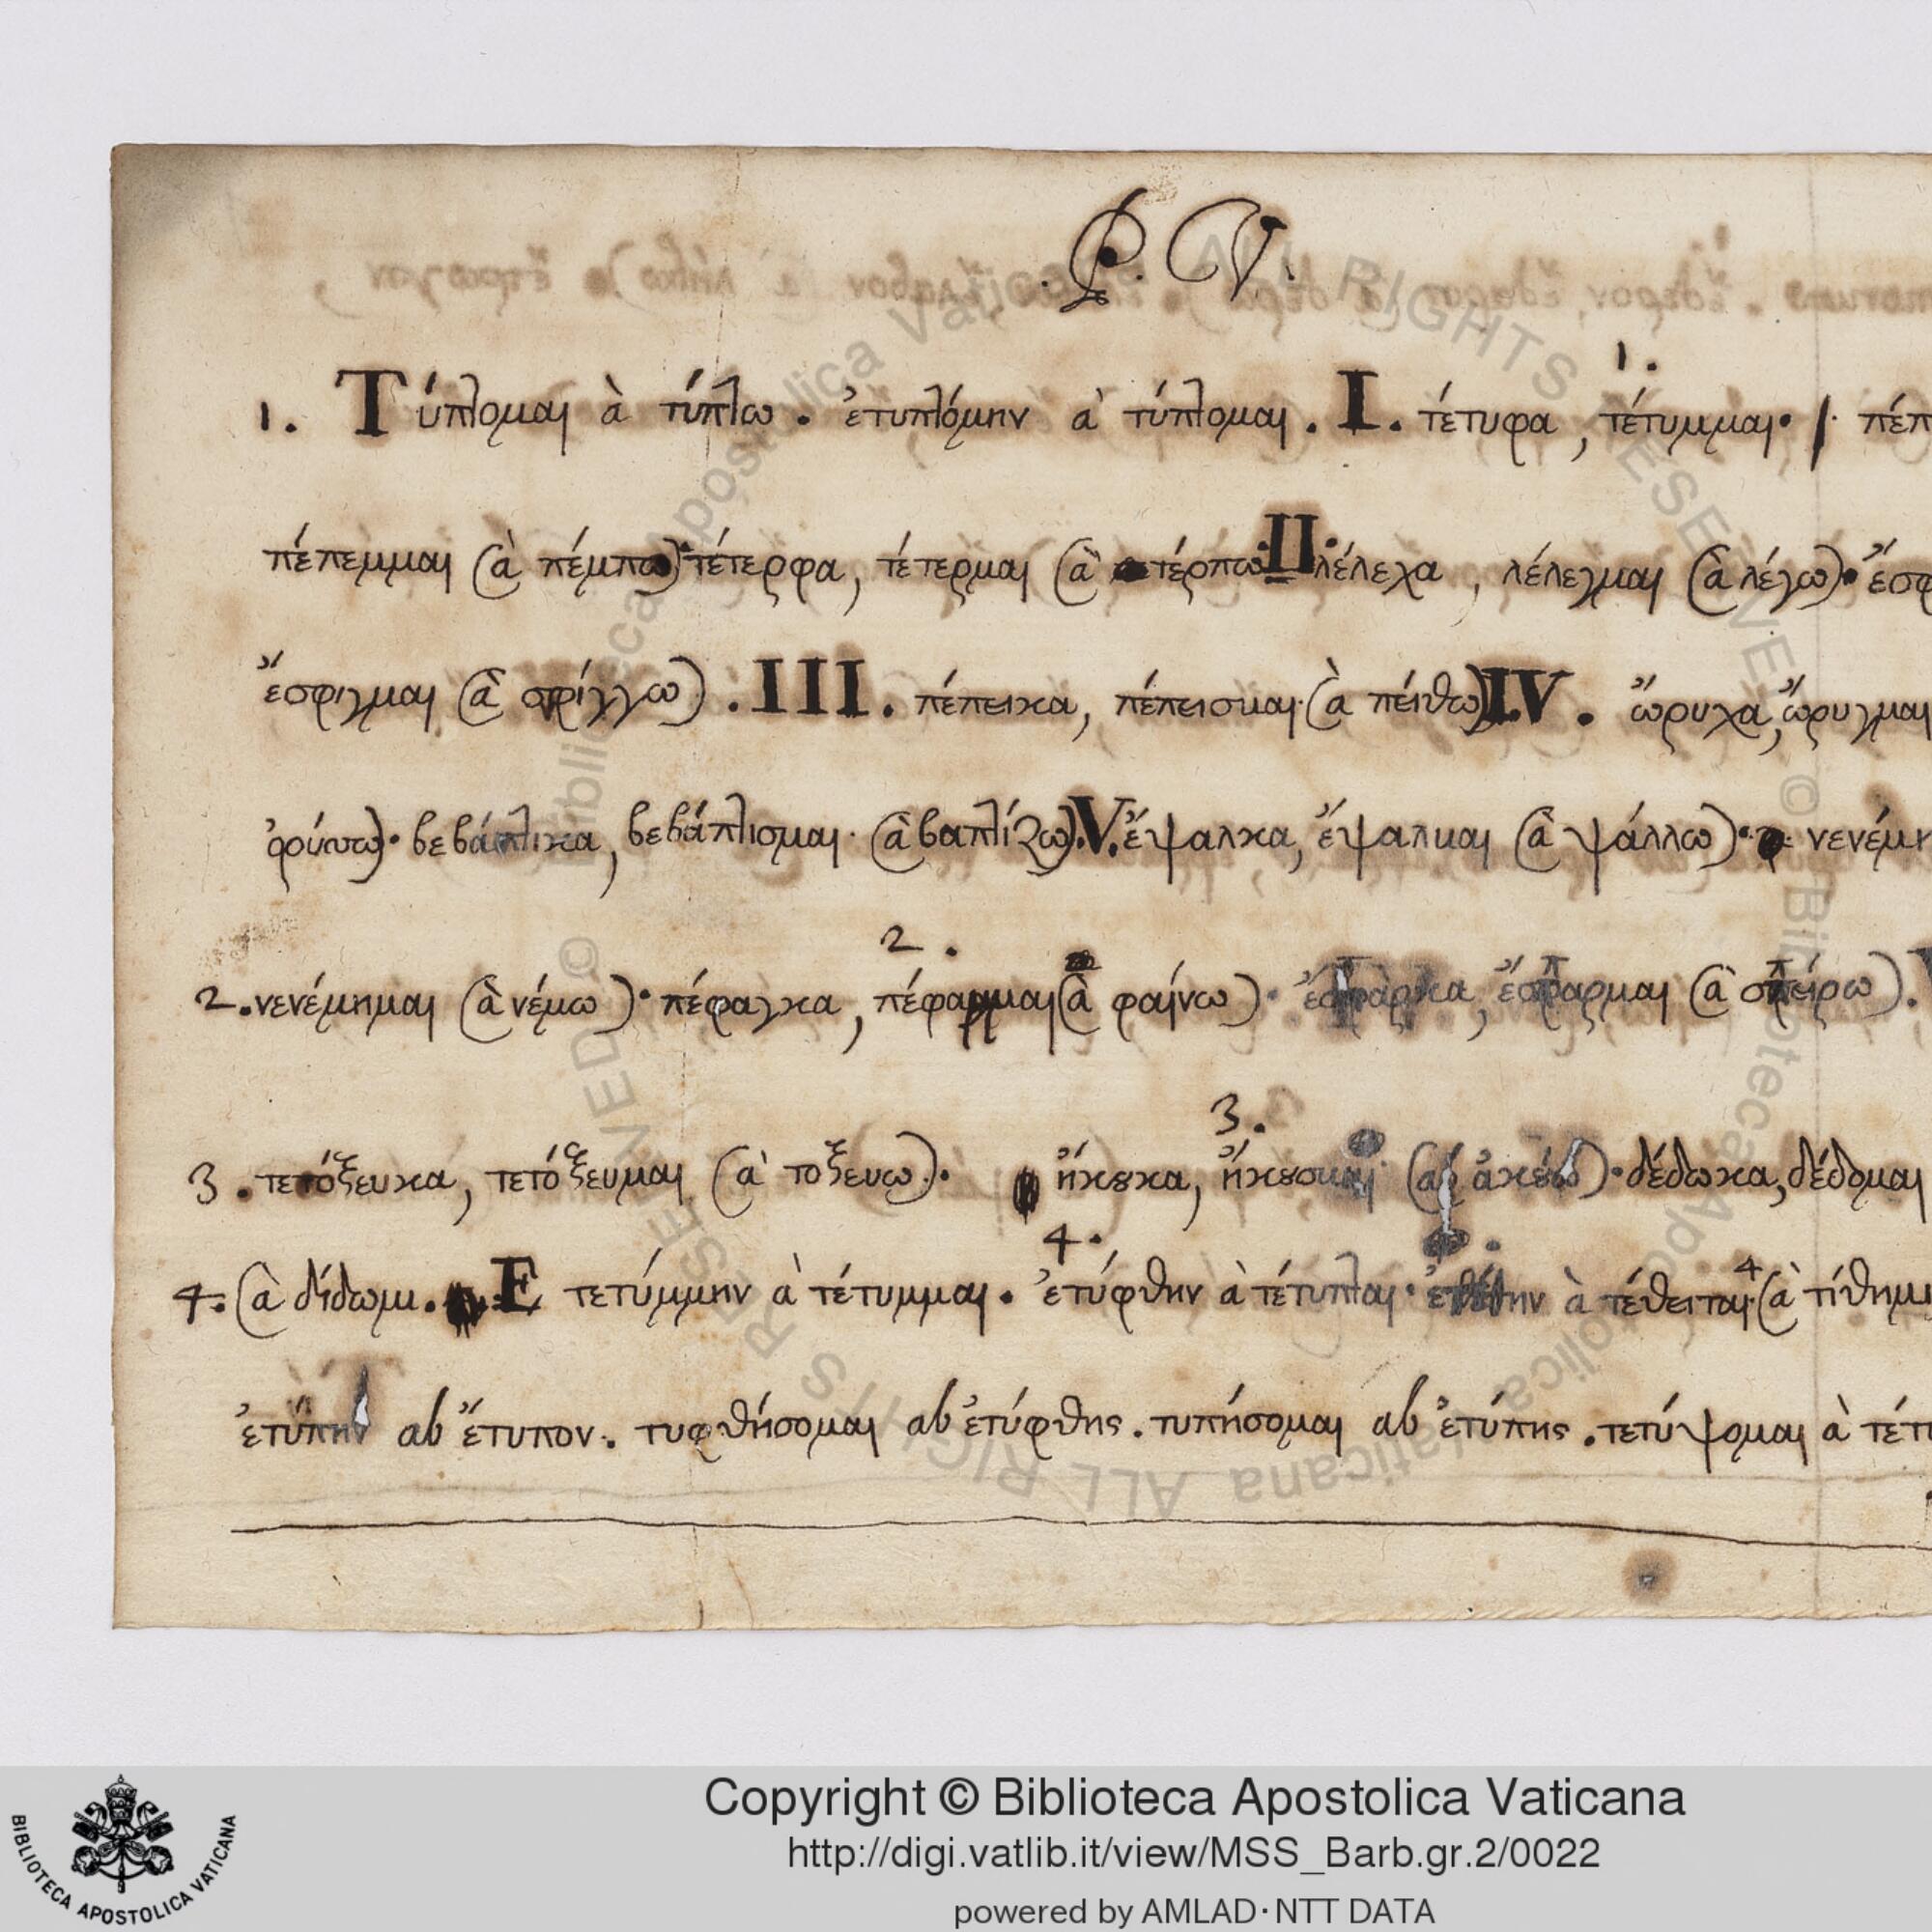 .P. V.
1.
1. Τύπτομαι à τύπτω. ἐτυπτόμην à τύπτομαι. I. τέτυφα, τέτυμμαι·
πέπεμμαι (à πέμπω)· τέτερφα, τέτερμαι (à τέρπω. II. λέλεχα, λέλεγμαι (à λέγω)·
ἔσφιγμαι (à σφίγγω). III. πέπεικα, πέπεισμαι· (à πείθω) IV. ὤρυχα, ὤρυγμαι
ὀρύττω)· βεβάπτικα, βεβάπτισμαι· (à βαπτίζω). V. ἔψαλκα, ἔψαλμαι (à ψάλλω)·
2.
2. νενέμημαι (à νέμω)· πέφαγκα, πέφαμμαι (à φαίνω)· ἔσπαρκα, ἔσπαρμαι (à σπείρω).
3.
3. τετόξευκα, τετόξευμαι (à τοξευω)· ἤκȣκα, ἤκȣσμαι (ab ἀκȣ́ω)· δέδωκα, δέδομαι
4.
4. (à δίδωμι. E τετύμμην à τέτυμμαι. ἐτύφθην à τέτυπται· ἐτέθην à τέθειται (à τίθημι
4
ἐτύπην ab ἔτυπον. τυφθήσομαι ab ἐτύφθης. τυπήσομαι ab ἐτύπης. τετύψομαι à
Copyright © Biblioteca Apostolica Vaticana
http://digi.vatlib.it/view/MSS_Barb.gr.2/0022
powered by AMLAD·NTT DATA
BIBLIOTECA APOSTOLICA VATICANA
© Biblioteca Apostolica Vaticana ALL RIGHTS RESERVED